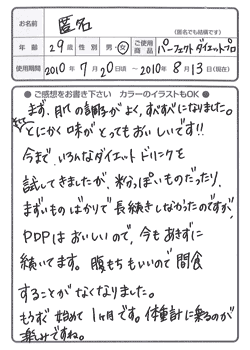 お名前 匿名
(匿名でも結構です)
年齢 29歳 性別 男・女 ご使用商品 パーフェクトダイエットプロ
使用期間 2010年7月20日頃 〜 2010年8月13日(現在)
●ご感想をお書き下さい カラーのイラストもOK●
まず、肌の調子がよく、すべすべになりました。
とにかく味がとってもおいしいです!!
今まで、いろんなダイエットドリンクを
試してきましたが、粉っぽいものだったり、
まずいものばかりで長続きしなかったのですが、
PDPはおいしいので、今もあきずに
続いてます。腹もちもいいので間食
することがなくなりました。
もうすぐ始めて1ヶ月です。体重計に乗るのが
楽しみですね。